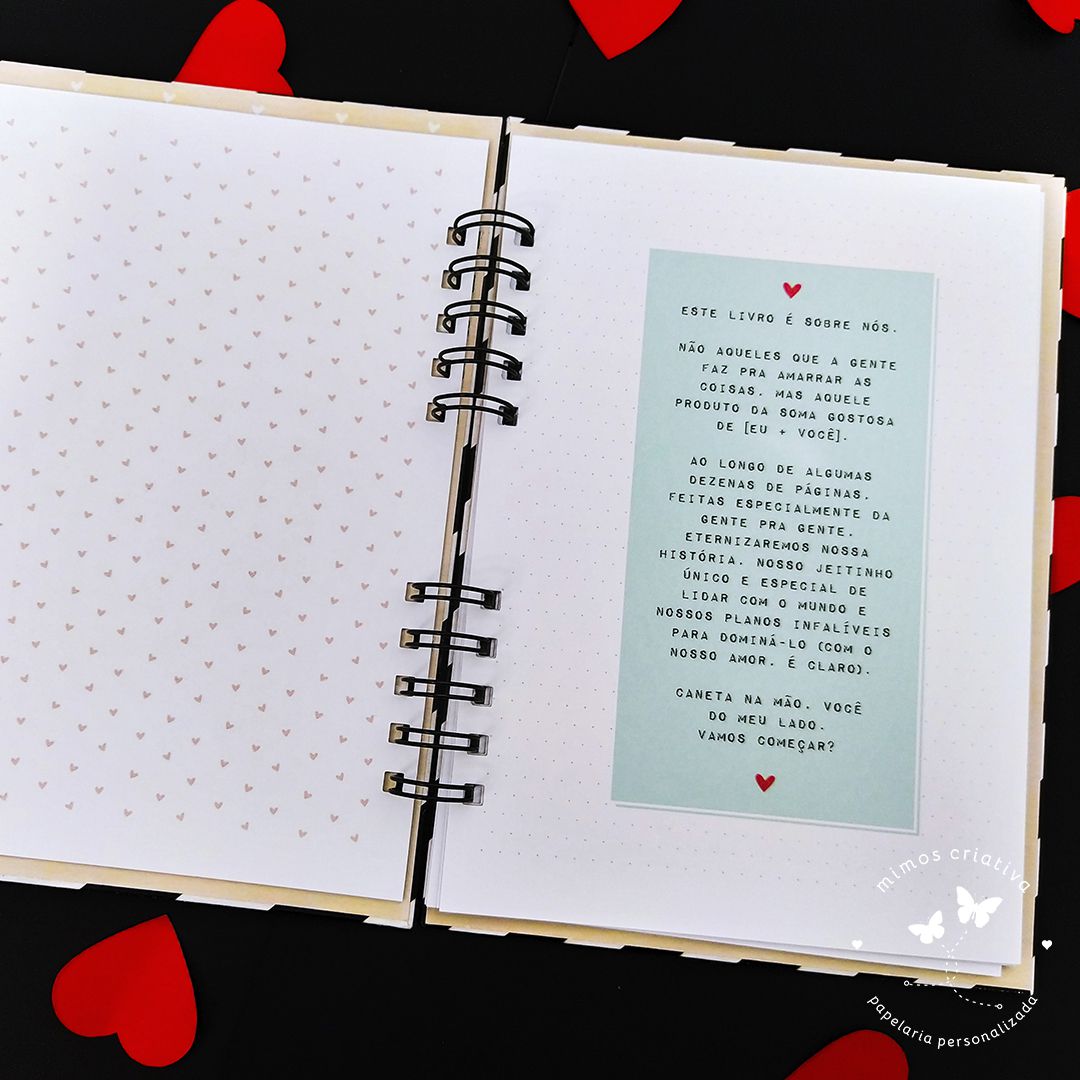 ESTE LIVRO É SOBRE NÓS.
NÃO AQUELES QUE A GENTE
FAZ PRA AMARRAR AS
COISAS, MAS AQUELE
PRODUTO DA SOMA GOSTOSA
DE [EU + VOCÊ].
AO LONGO DE ALGUMAS
DEZENAS DE PÁGINAS,
FEITAS ESPECIALMENTE DA
GENTE PRA GENTE,
ETERNIZAREMOS NOSSA
HISTÓRIA, NOSSO JEITINHO
ÚNICO E ESPECIAL DE
LIDAR COM O MUNDO E
NOSSOS PLANOS INFALÍVEIS
PARA DOMINÁ-LO (COM O
NOSSO AMOR, É CLARO).
CANETA NA MÃO, VOCÊ
DO MEU LADO.
VAMOS COMEÇAR?
mimos criativa
papelaria personalizada